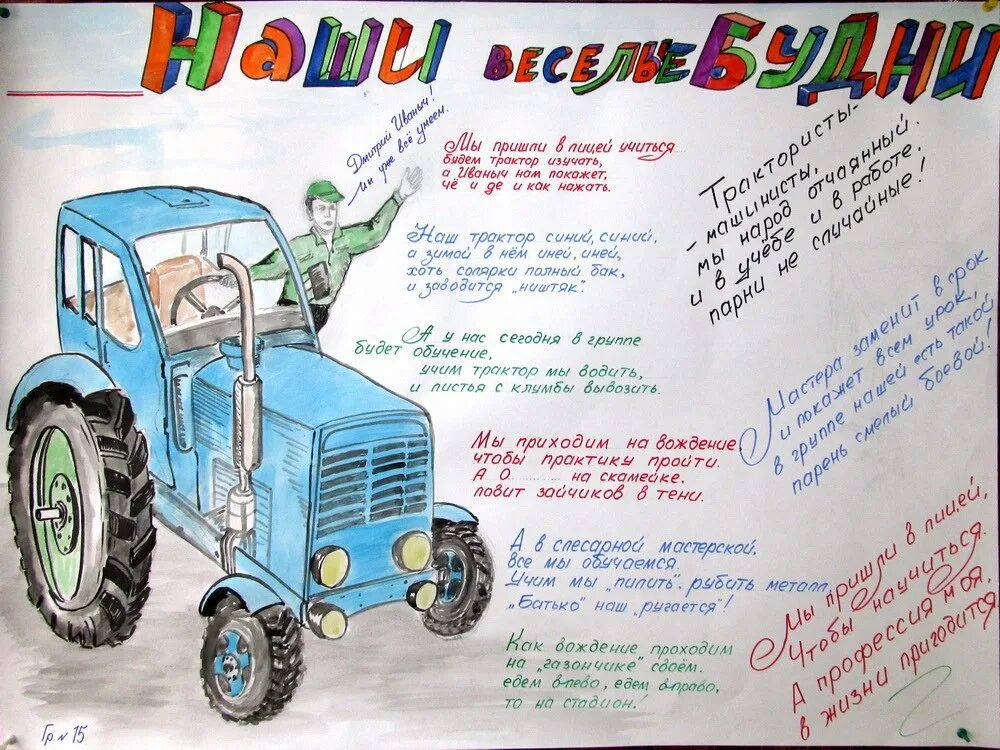 Наши веселые Будни
Дмитрий Иваныч!
мы уже всё умеем.
Мы пришли в лицей учиться
будем трактор изучать,
а Иваныч нам покажет,
чё и де и как нажать.
Наш трактор синий, синий,
а зимой в нём иней, иней,
хоть солярки полный бак,
и заводится „ништяк".
А у нас сегодня в группе
будет обучение,
учим трактор мы водить,
и листья с клумбы вывозить.
Мы приходим на вождение
чтобы практику пройти.
А О............ на скамейке,
ловит зайчиков в тени.
А в слесарной мастерской,
все мы обучаемся.
Учим мы „пилить". рубить металл,
„Батько" наш „ругается"!
Как вождение проходим
на „газончике" своём.
едем влево, едем вправо,
то на стадион!
Трактористы-
- машинисты,
мы народ отчаянный.
и в учёбе и в работе.
парни не случайные!
Мастера заменит в срок
и покажет всем урок,
в группе нашей есть такой
парень смелый боевой!
Мы пришли в лицей,
Чтобы научиться.
А профессия моя,
в жизни пригодится
Гр.N 15